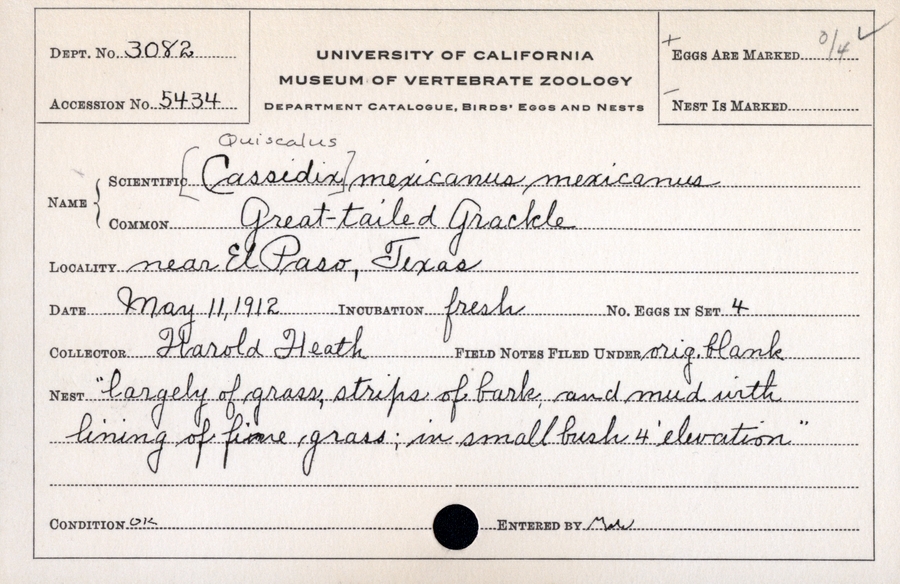 Dept. No. 3082
Accession No. 5434
UNIVERSITY OF CALIFORNIA
MUSEUM OF VERTEBRATE ZOOLOGY
Department Catalogue, Birds' Eggs and Nests
+ Eggs Are Marked 0/4 ✓
– Nest Is Marked
Quiscalus
Name { Scientific [Cassidix] mexicanus mexicanus
Common Great-tailed Grackle
Locality near El Paso, Texas
Date May 11, 1912 Incubation fresh No. Eggs in Set 4
Collector Harold Heath Field Notes Filed Under orig. blank
Nest "largely of grass, strips of bark, and mud with
lining of fine grass; in small bush 4' elevation"
Condition OK Entered by